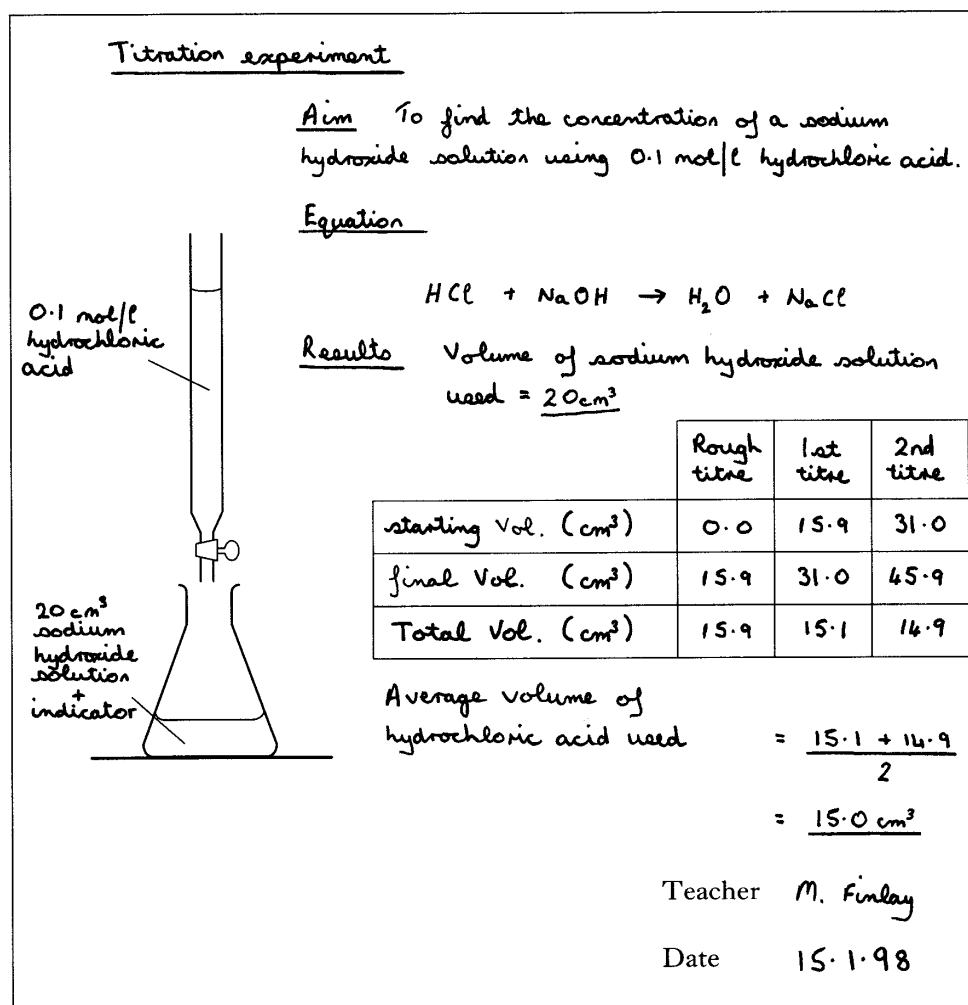 Titration experiment
Aim To find the concentration of a sodium
hydroxide solution using 0.1 mol/l hydrochloric acid.
Equation
HCl + NaOH → H₂O + NaCl
0.1 mol/l
hydrochloric
acid
Results Volume of sodium hydroxide solution
used = 20cm³
Rough titre 1st titre 2nd titre
starting Vol. (cm³) 0.0 15.9 31.0
final Vol. (cm³) 15.9 31.0 45.9
Total Vol. (cm³) 15.9 15.1 14.9
20 cm³
sodium
hydroxide
solution
+
indicator
Average volume of
hydrochloric acid used = 15.1 + 14.9
2
= 15.0 cm³
Teacher M. Finlay
Date 15.1.98